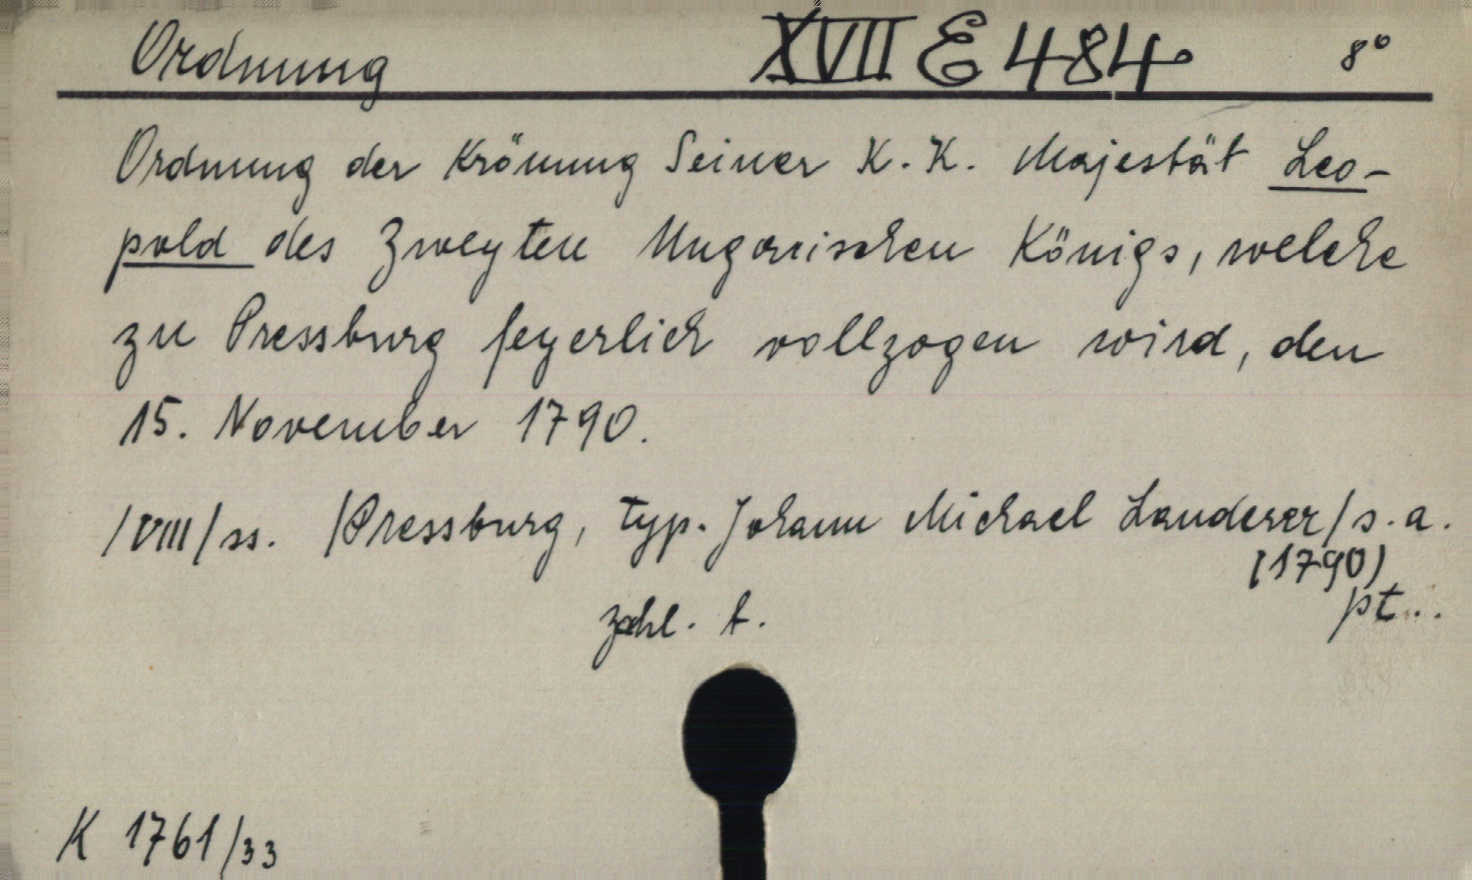 Ordnung XVII E 484 8°
Ordnung der Krönung Seiner K. K. Majestät Leo-
pold des Zweyten Ungarischen Königs, welche
zu Pressburg feyerlich vollzogen wird, den
15. November 1790.
/VIII/ ss. /Pressburg, typ. Johann Michael Landerer/ s. a.
(1790)
zahl. t. pt...
K 1761/33